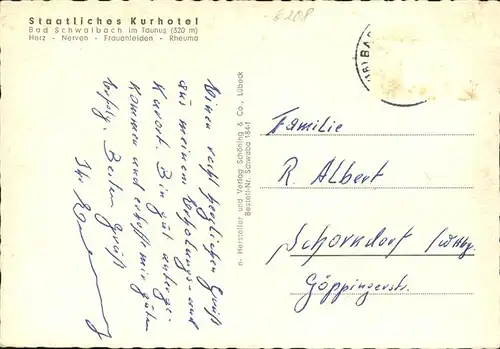 Staatliches Kurhotel
Bad Schwalbach im Taunus (320 m)
Herz - Nerven - Frauenleiden - Rheuma
Einen recht herzlichen Gruß
aus meinem Erholungs- und
Kurort. Bin gut unterge-
kommen und erhoffe mir guten
Erfolg. Besten Gruß
Ihr
Hersteller und Verlag Schöning & Co., Lübeck
Bestell-Nr. Schwaba 184-f
Familie
R. Albert
Schorndorf (Wttbg.
Göppingerstr.